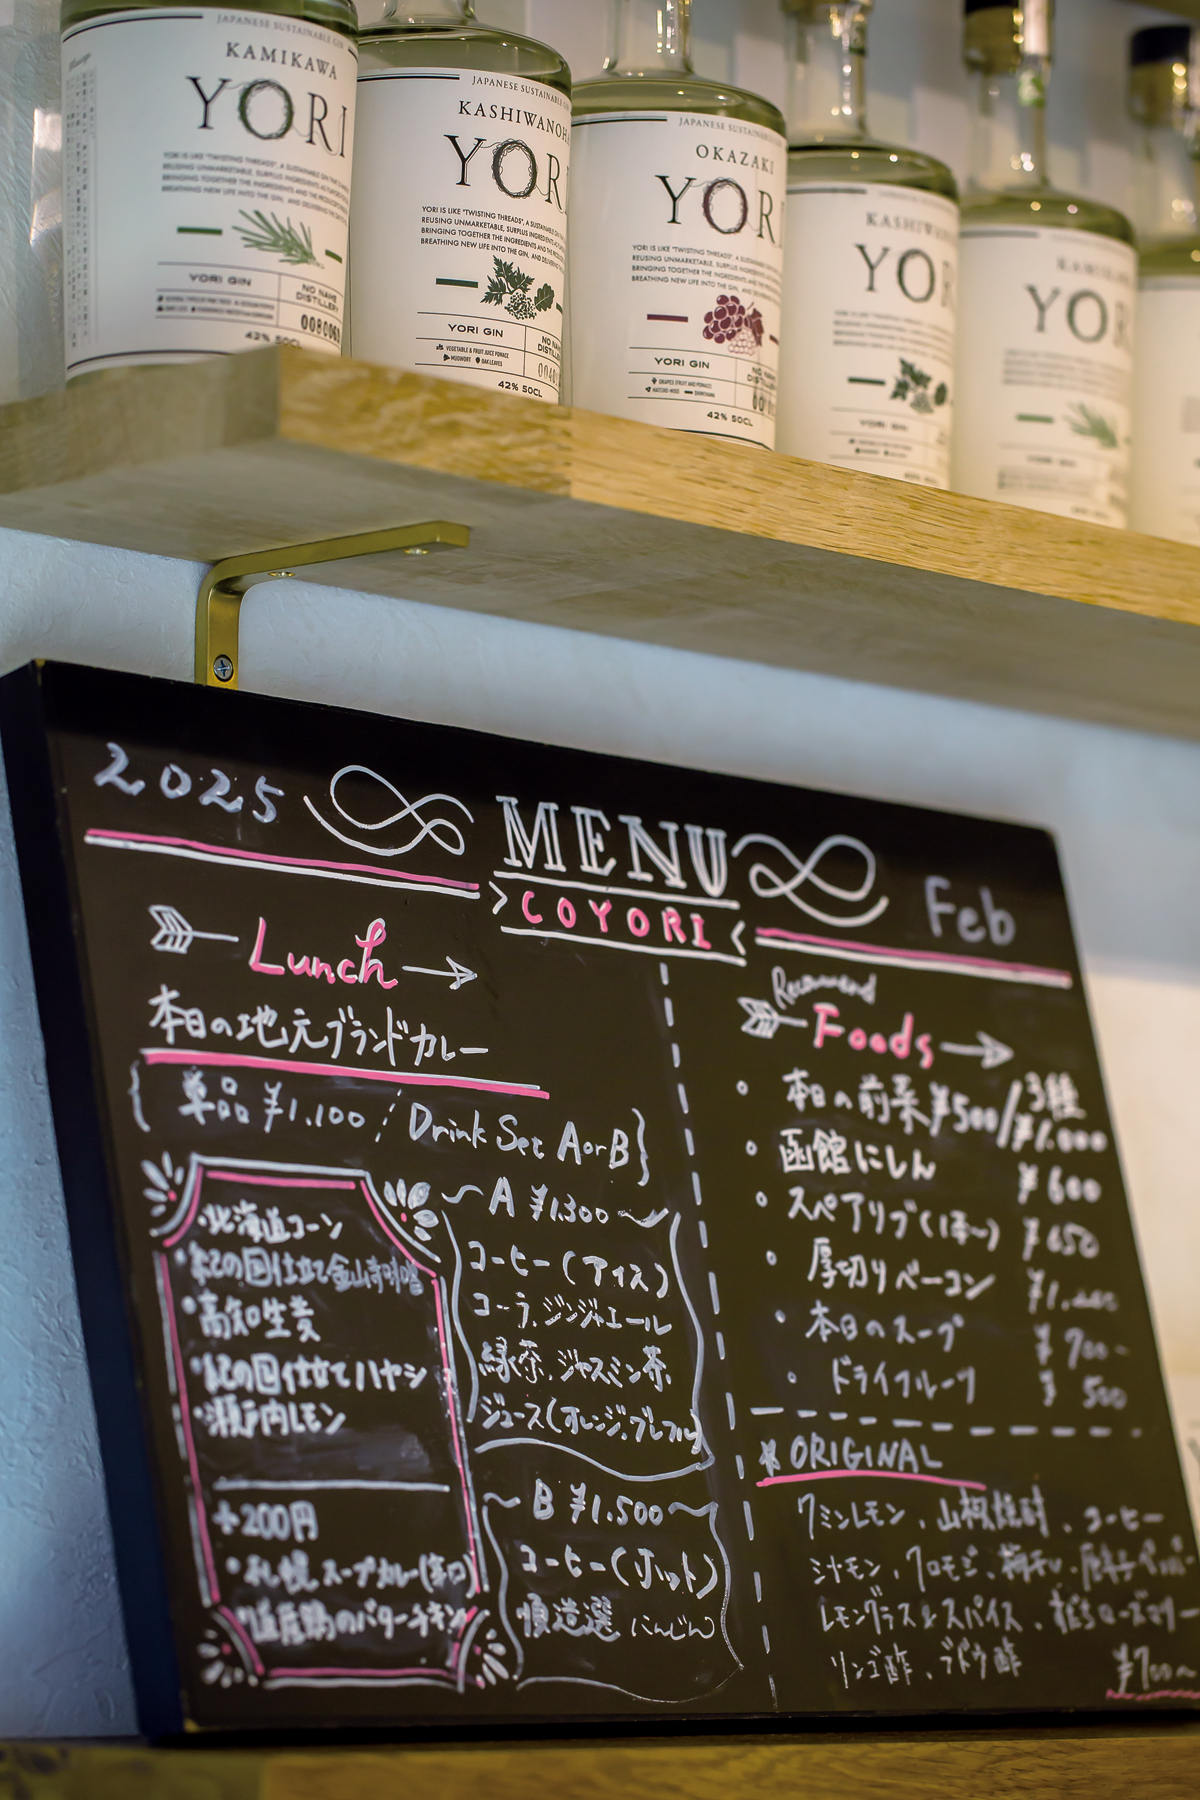 JAPANESE SUSTAINABLE GIN
KAMIKAWA
YORI
YORI IS LIKE "TWISTING THREADS", A SUSTAINABLE GIN
REUSING UNMARKETABLE, SURPLUS INGREDIENTS
BRINGING TOGETHER THE INGREDIENTS AND THE
BREATHING NEW LIFE INTO THE GIN, AND DELIVERING
YORI GIN
NO NAME
DISTILLERY
42% 50CL
JAPANESE SUSTAINABLE
KASHIWANOHA
YORI
YORI IS LIKE "TWISTING THREADS", A SUSTAINABLE
REUSING UNMARKETABLE, SURPLUS INGREDIENTS
BRINGING TOGETHER THE INGREDIENTS AND THE
BREATHING NEW LIFE INTO THE GIN, AND
YORI GIN
VEGETABLE & FRUIT JUICE POMACE
MUGWORT OAK LEAVES
42% 50CL
JAPANESE SUSTAINABLE
OKAZAKI
YORI
YORI IS LIKE "TWISTING THREADS", A SUSTAINABLE
REUSING UNMARKETABLE, SURPLUS INGREDIENTS
BRINGING TOGETHER THE INGREDIENTS AND THE
BREATHING NEW LIFE INTO THE GIN, AND
YORI GIN
GRAPES (FRUIT AND POMACE)
42% 50CL
YORI
YORI GIN
YOR
2025
MENU
COYORI
Feb
Lunch
本日の地元ブランドカレー
単品 ¥1,100 / Drink Set A or B
・北海道コーン
・紀の国仕立て金山寺味噌
・高知生姜
・紀の国仕立てハヤシ
・瀬戸内レモン
+200円
・札幌スープカレー(辛口)
・道産鶏のバターチキン
A ¥1,300
コーヒー(アイス)
コーラ、ジンジャエール
緑茶、ジャスミン茶
ジュース(オレンジ、グレフル)
B ¥1,500
コーヒー(ホット)
順造選 にんじん
Recommend
Foods
・本日の前菜 ¥500/3種 ¥1,000
・函館にしん ¥600
・スペアリブ(1本〜) ¥650
・厚切りベーコン ¥1,
・本日のスープ ¥700-
・ドライフルーツ ¥500
ORIGINAL
クミンレモン、山椒焼酎、コーヒー
、クロモジ、梅干し、
レモングラス&スパイス、
リンゴ酢、ブドウ酢
¥700〜